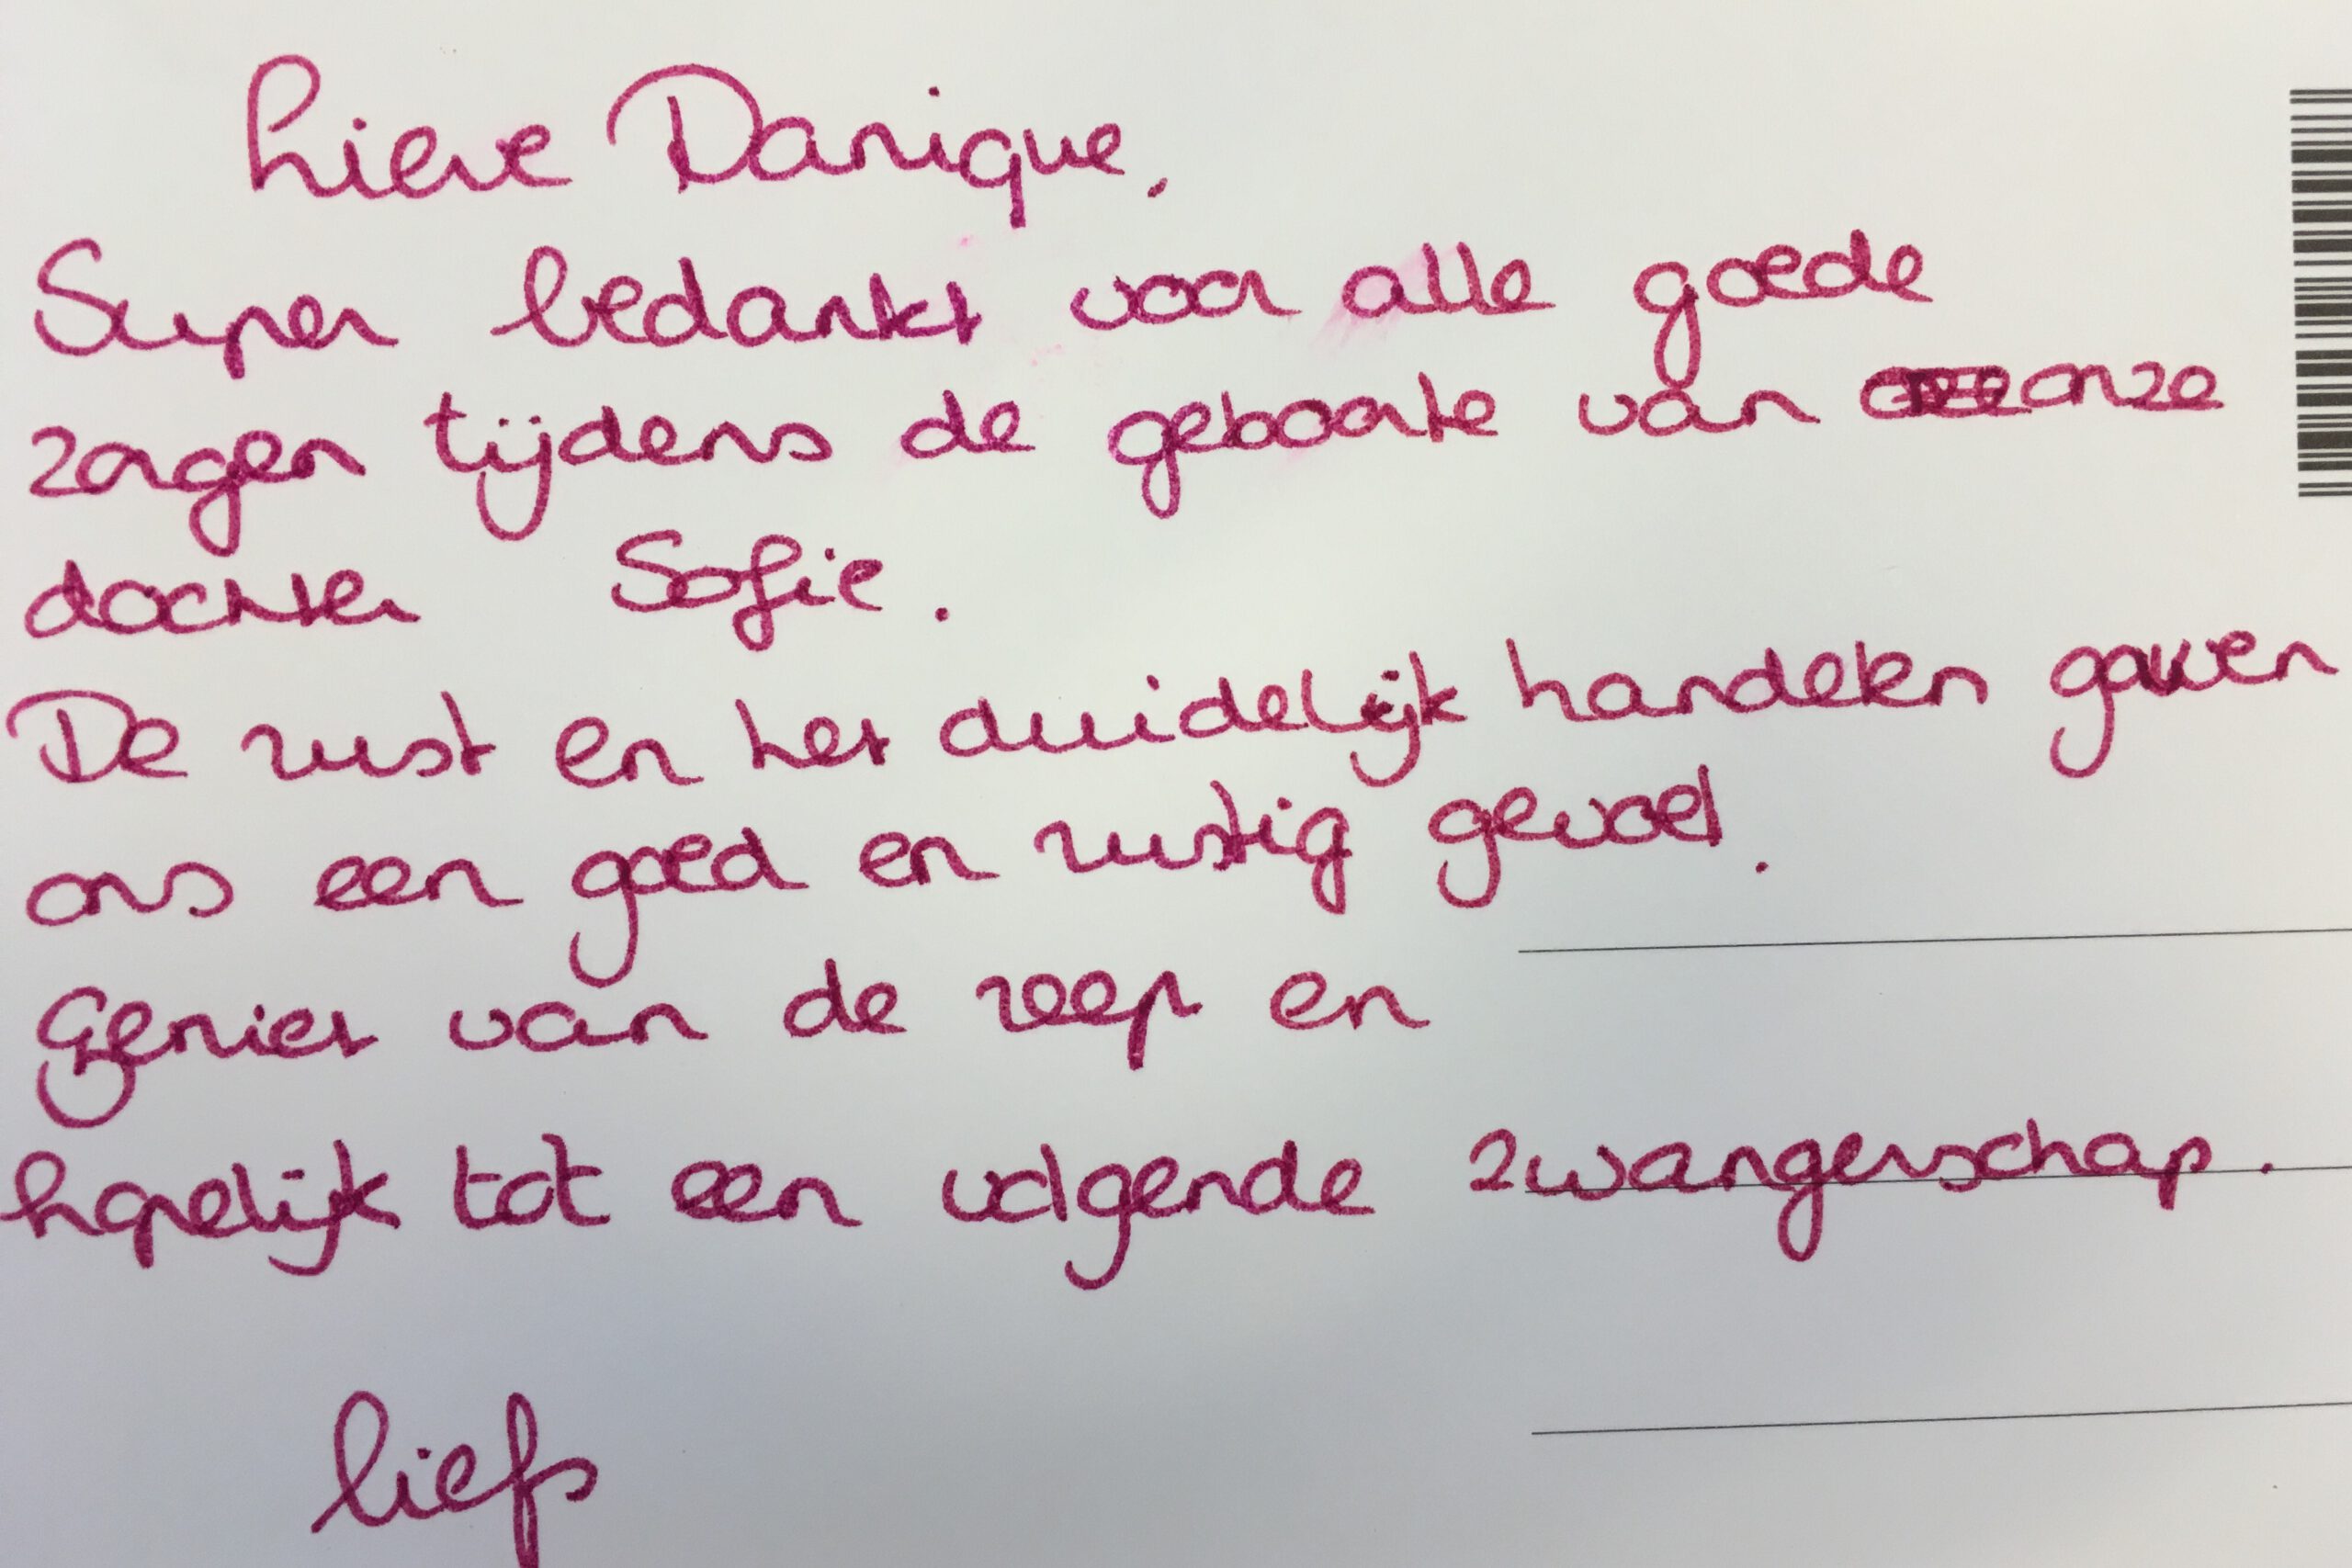 Lieve Danique,
Super bedankt voor alle goede
zorgen tijdens de geboorte van onze
dochter Sofie.
De rust en het duidelijk handelen gaven
ons een goed en rustig gevoel.
Geniet van de reep en
hopelijk tot een volgende zwangerschap.
liefs